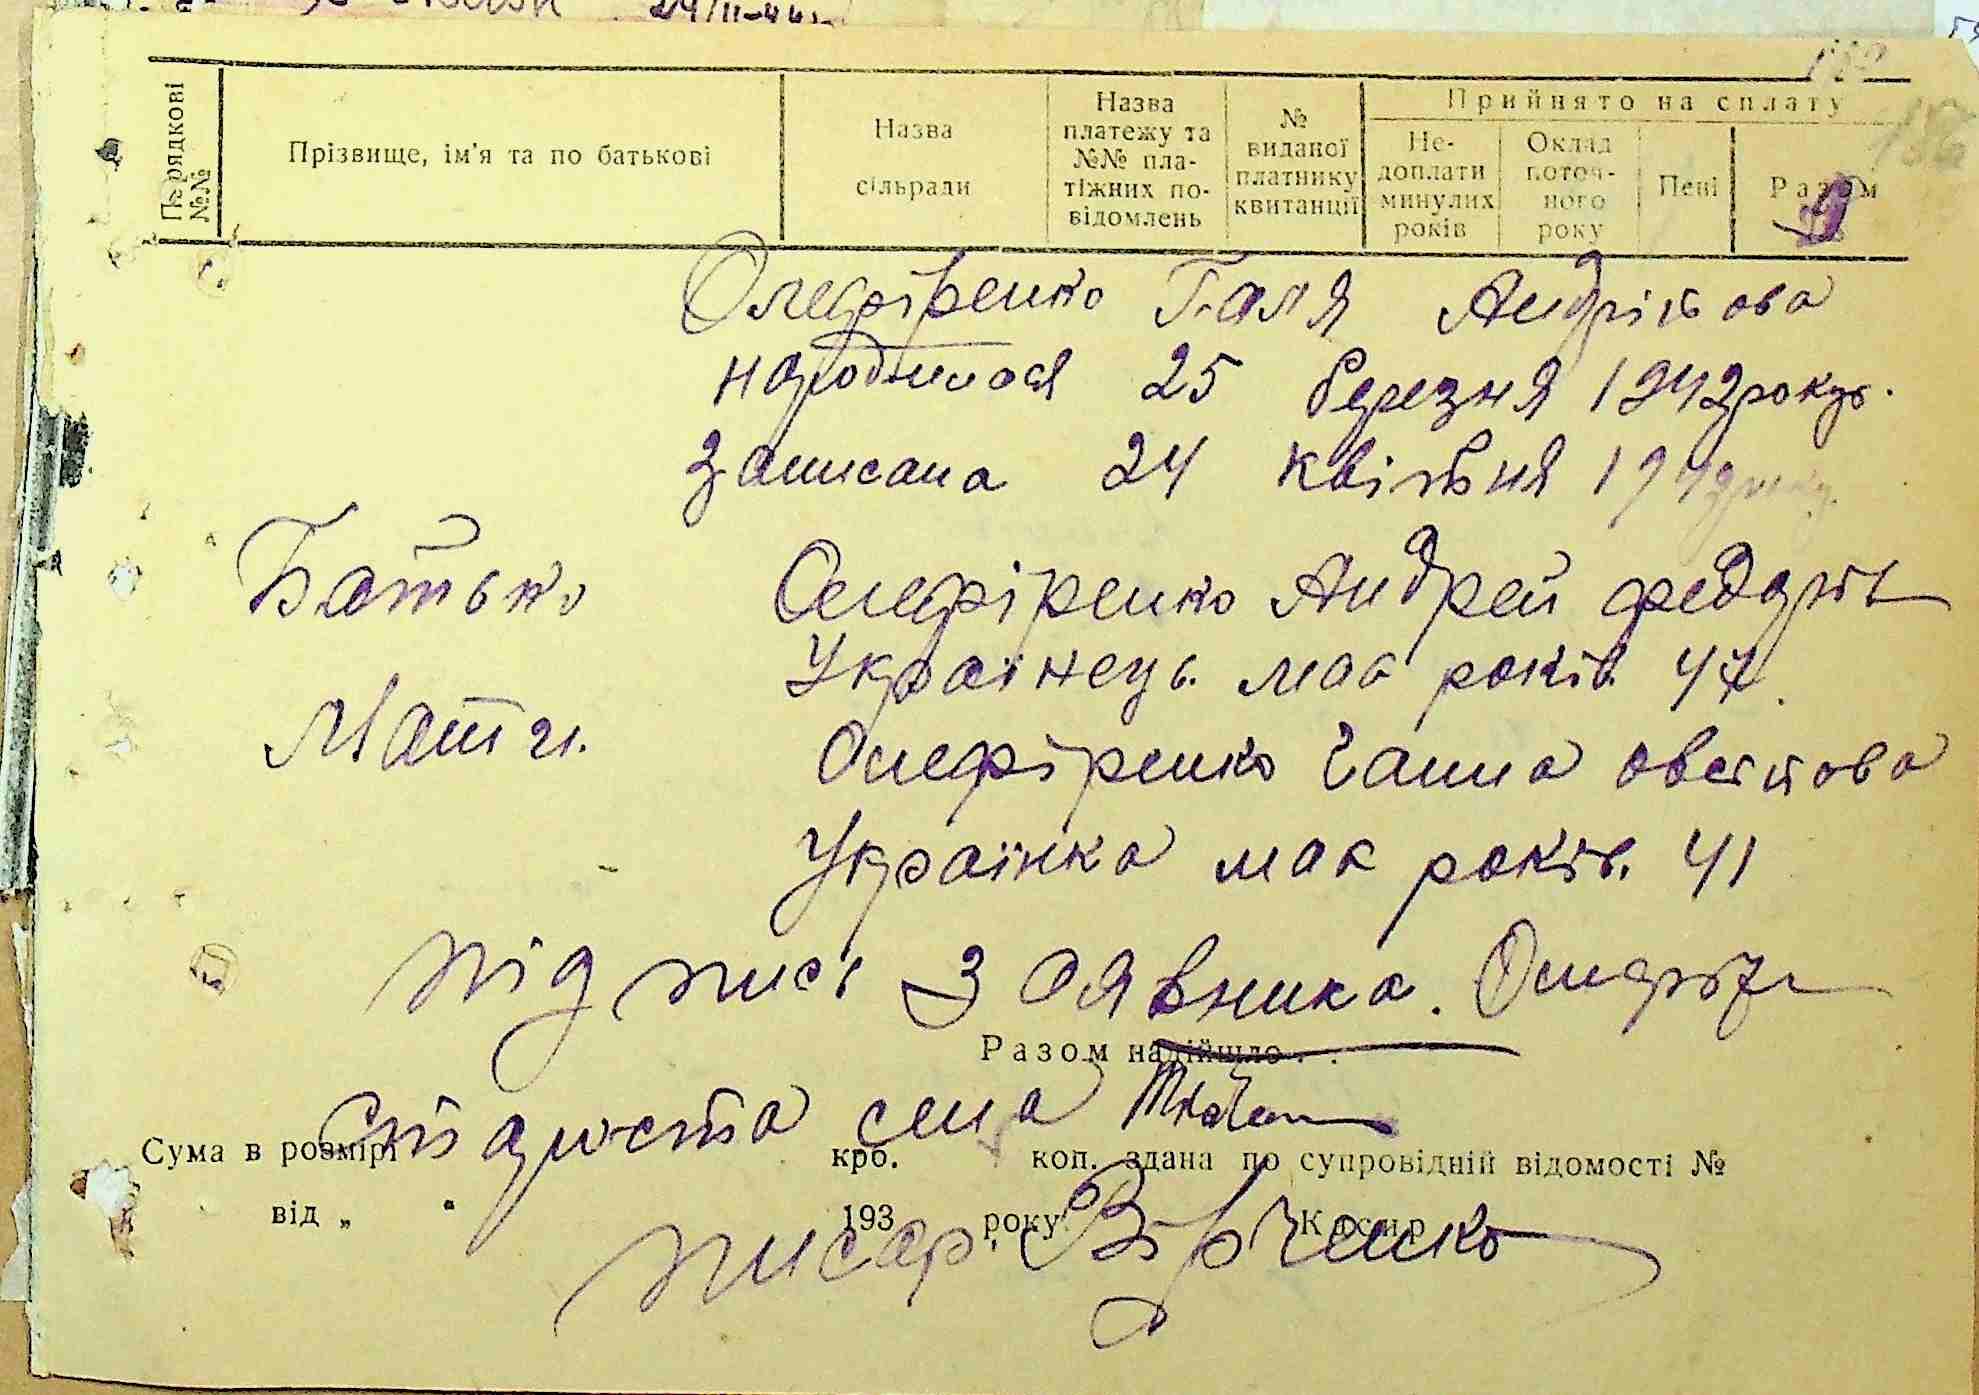 29/II-44
Порядкові №№
Прізвище, ім'я та по батькові
Назва сільради
Назва платежу та №№ платіжних повідомлень
№ виданої платнику квитанції
Прийнято на сплату
Недоплати минулих років
Оклад поточного року
Пені
Разом
Олефіренко Галя Андріївова
народилася 25 березня 1942 року.
Записана 24 квітня 1942 року
Батько Олефіренко Андрей
Українець має років 47.
Мати. Олефіренко Ганна
Українка має років. 41
підпись Заявника.
Разом надійшло . .
Староста села
Сума в розмірі крб. коп. здана по супровідній відомості №
від „ " 193 року Касир
писар.